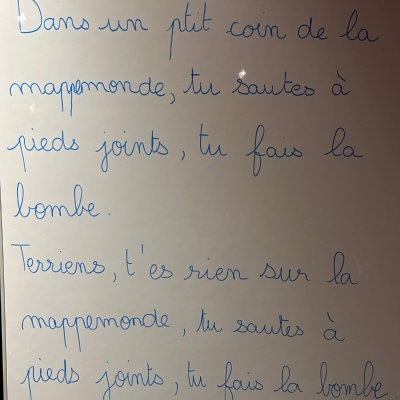 Dans un ptit coin de la
mappemonde, tu sautes à
pieds joints, tu fais la
bombe.
Terriens, t'es rien sur la
mappemonde, tu sautes à
pieds joints, tu fais la bombe.